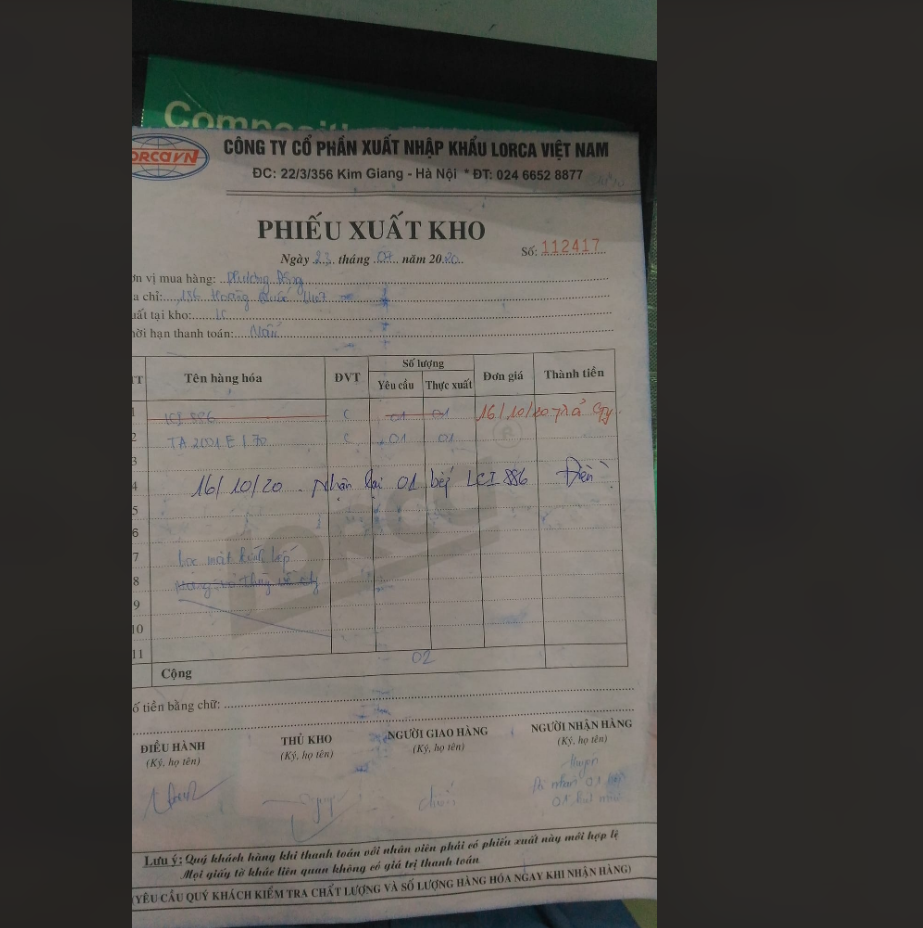 Compositi
LORCAVN
CÔNG TY CỔ PHẦN XUẤT NHẬP KHẨU LORCA VIỆT NAM
ĐC: 22/3/356 Kim Giang - Hà Nội * ĐT: 024 6652 8877
PHIẾU XUẤT KHO
Số: 112417
Ngày 23 tháng 07 năm 2020
ơn vị mua hàng: Phương Đông
a chỉ: 136 Hoàng Quốc Việt
uất tại kho: LC
ời hạn thanh toán:
TT Tên hàng hóa ĐVT Số lượng Đơn giá Thành tiền
Yêu cầu Thực xuất
1 LCI 886 C 01 01 16/10/20 trả Cty
2 TA 2001E 170 C 01 01
3
4 16/10/20 Nhận lại 01 bếp LCI 886
5
6
7 bọc mặt kính bếp
8
9
10
11
Cộng 02
ố tiền bằng chữ:
ĐIỀU HÀNH THỦ KHO NGƯỜI GIAO HÀNG NGƯỜI NHẬN HÀNG
(Ký, họ tên) (Ký, họ tên) (Ký, họ tên) (Ký, họ tên)
Lưu ý: Quý khách hàng khi thanh toán với nhân viên phải có phiếu xuất này mới hợp lệ
Mọi giấy tờ khác liên quan không có giá trị thanh toán
(YÊU CẦU QUÝ KHÁCH KIỂM TRA CHẤT LƯỢNG VÀ SỐ LƯỢNG HÀNG HÓA NGAY KHI NHẬN HÀNG)